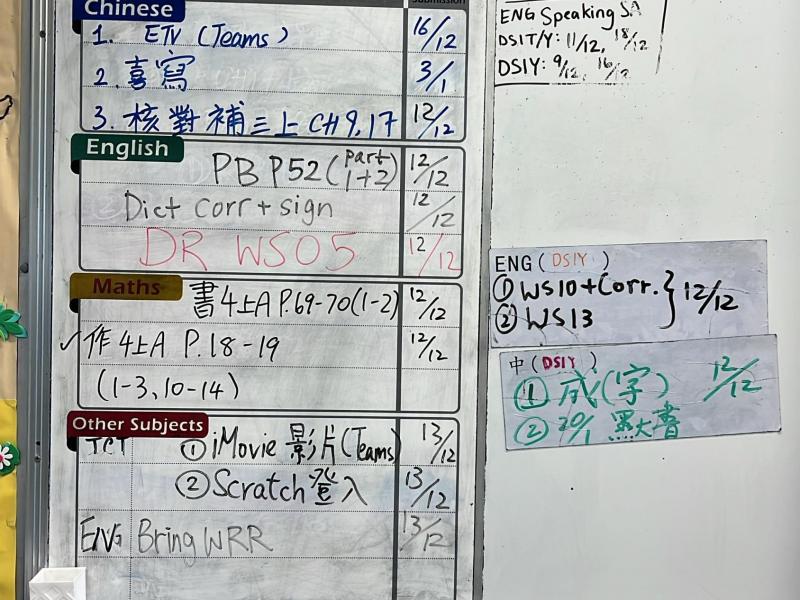 Chinese
Submission
1. ETV (Teams) 16/12
2. 喜寫 3/1
3. 核對補三上 CH 9,17 12/12
English
PB P52 (part 1+2) 12/12
Dict corr + sign 12/12
DR WS05 12/12
Maths
書4上A P.69-70 (1-2) 12/12
✓作4上A P.18-19 12/12
(1-3, 10-14)
Other Subjects
ICT ① iMovie 影片(Teams) 13/12
② Scratch 登入 13/12
ENG Bring WRR 13/12
ENG Speaking SA
DS1T/Y: 11/12, 18/12
DS1Y: 9/12, 16/12
ENG (DS1Y)
① WS10 + Corr. } 12/12
② WS13
中 (DS1Y)
① 成(字) 12/12
② 20/1 黑大書